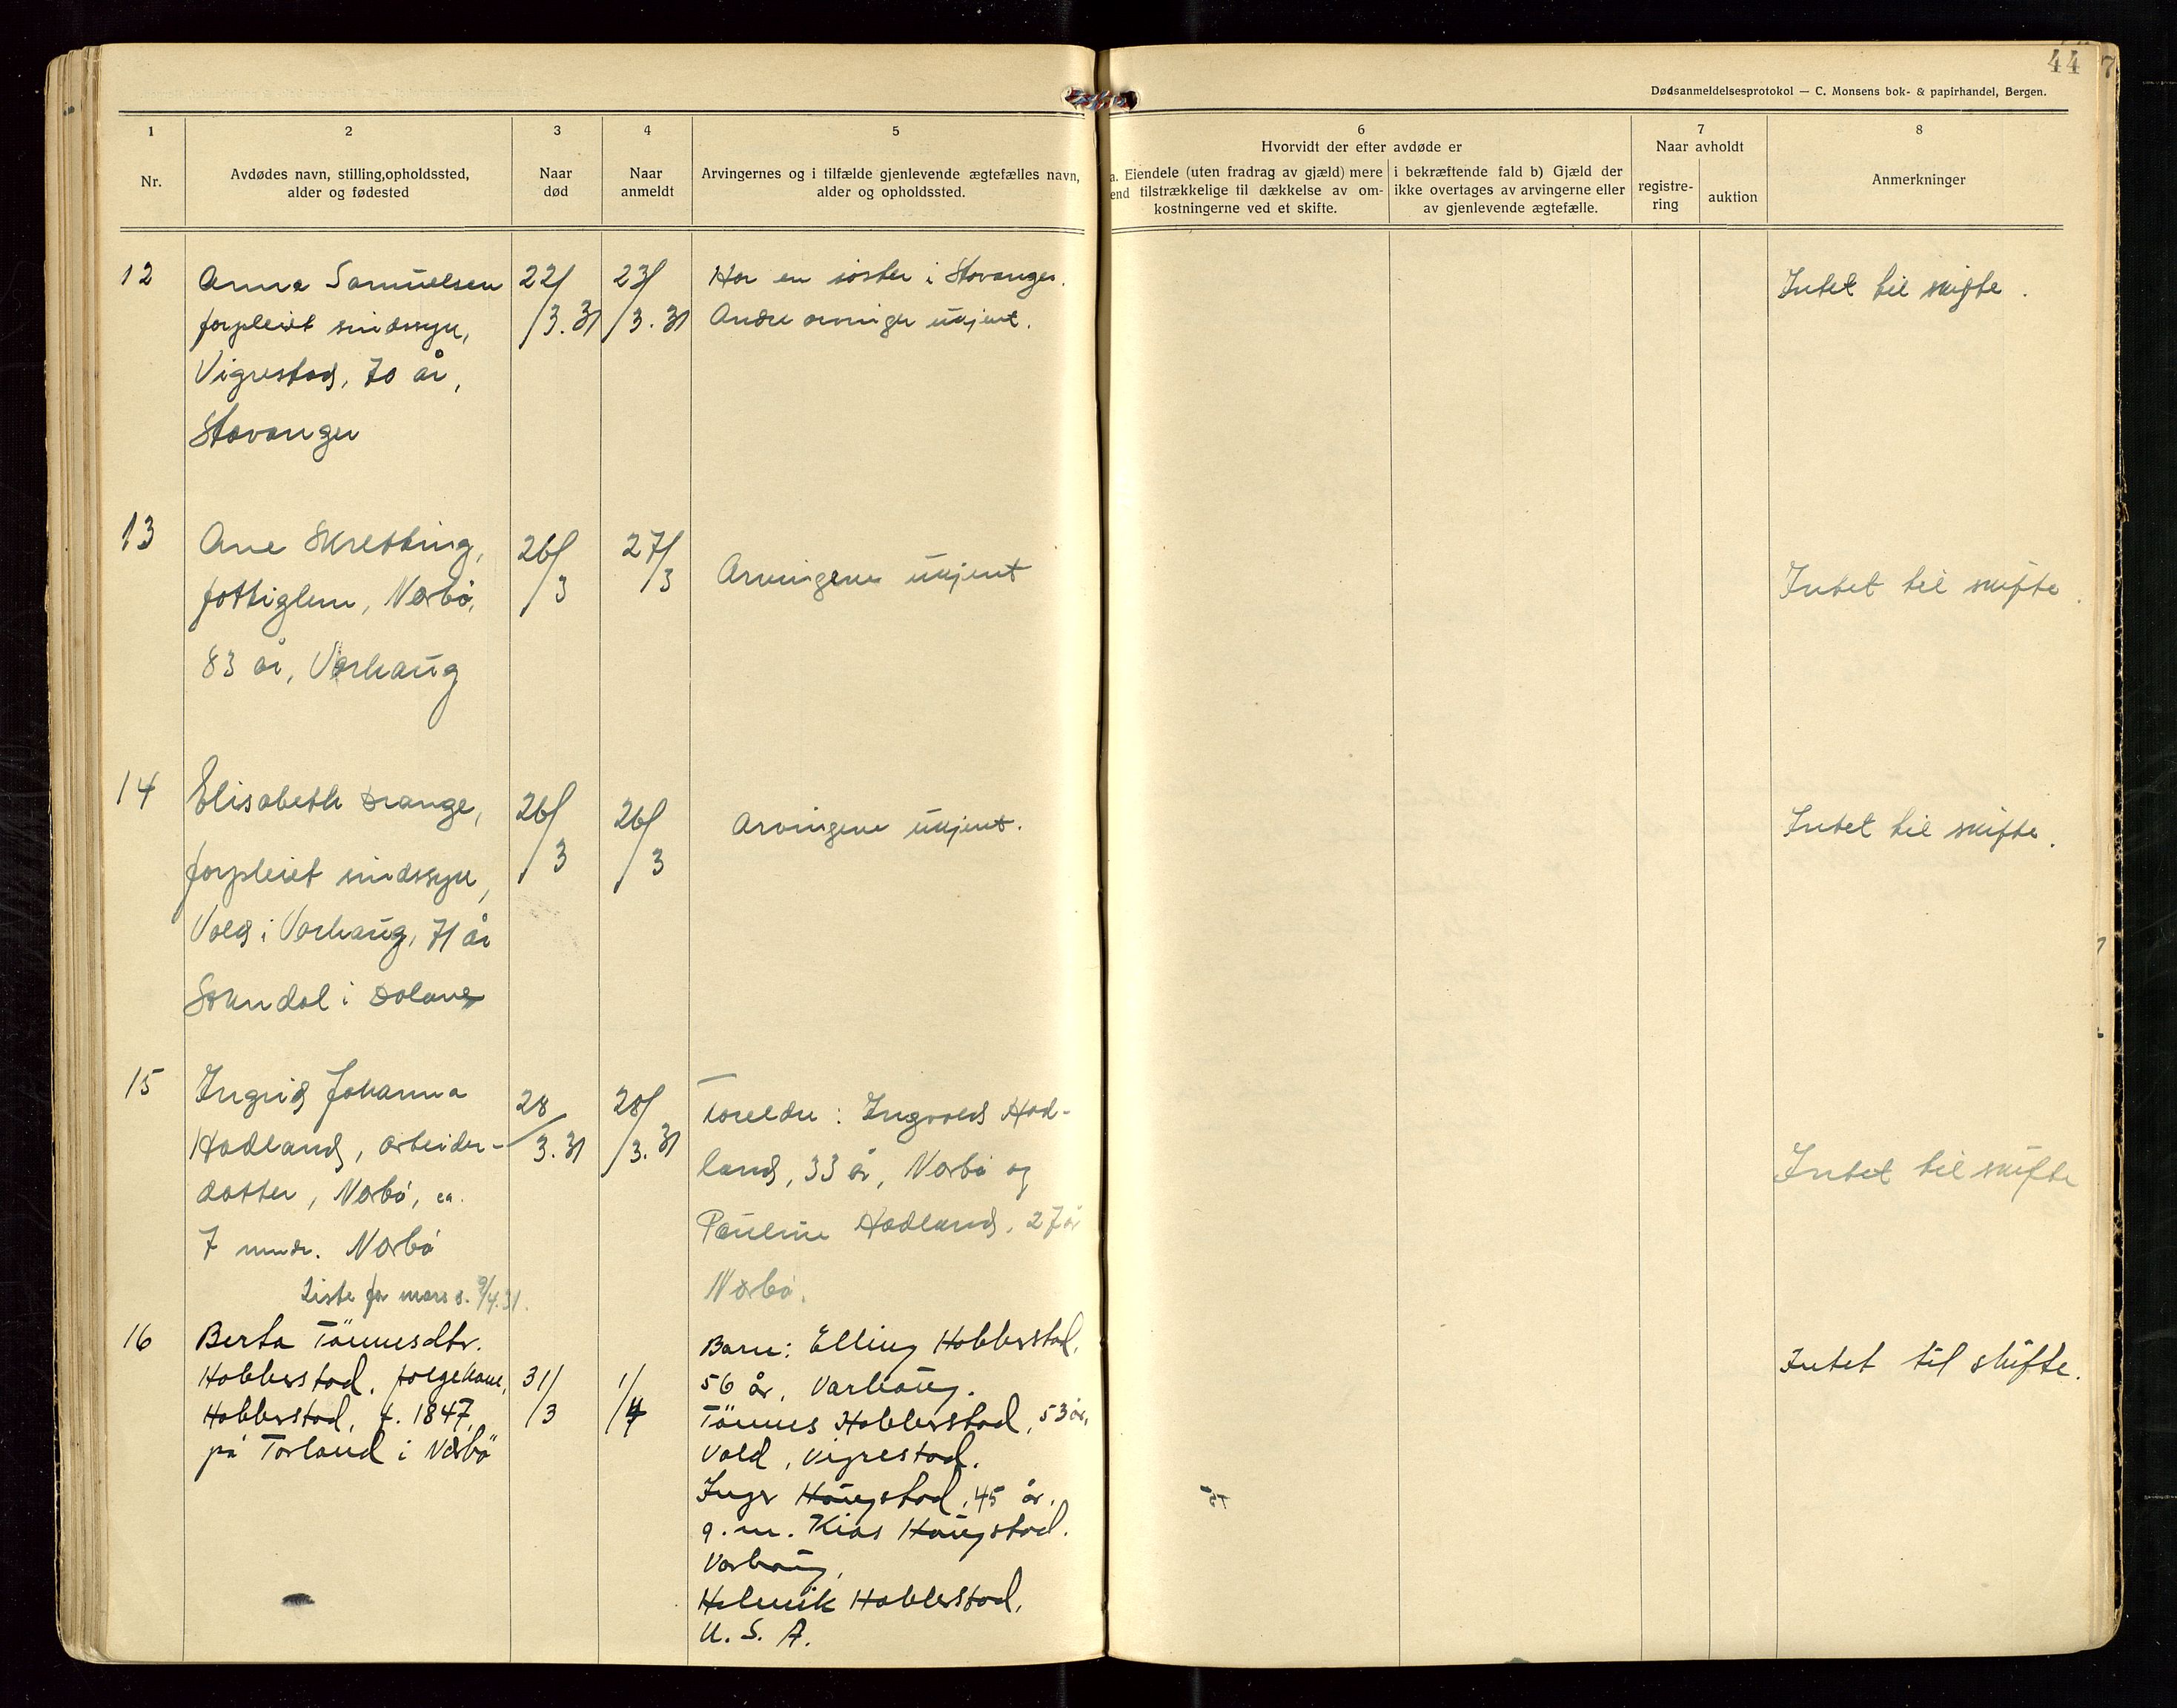 44
Dødsanmeldelsesprotokol — C. Monsens bok- & papirhandel, Bergen.
1
Nr.
2
Avdødes navn, stilling, opholdssted,
alder og fødested
3
Naar
død
4
Naar
anmeldt
5
Arvingernes og i tilfælde gjenlevende ægtefælles navn,
alder og opholdssted.
6
Hvorvidt der efter avdøde er
a. Eiendele (uten fradrag av gjæld) mere
end tilstrækkelige til dækkelse av om-
kostningerne ved et skifte.
i bekræftende fald b) Gjæld der
ikke overtages av arvingerne eller
av gjenlevende ægtefælle.
7
Naar avholdt
registre-
ring
auktion
8
Anmerkninger
12
Anna Samuelsen
forpleiet sindssyk,
Vigrestad, 70 år,
Stavanger
22/3.31
23/3.31
Har en søster i Stavanger.
Andre arvinger ukjent.
Intet til skifte.
13
Ane Skretting,
fattiglem, Nærbø,
83 år, Varhaug
26/3
27/3
Arvingene ukjent
Intet til skifte.
14
Elisabeth Drange,
forpleiet sindssyk,
Vold i Varhaug, 71 år
Sokndal i Dalane
26/3
26/3
Arvingene ukjent.
Intet til skifte.
15
Ingrid Johanna
Hadland, arbeider-
datter, Nærbø, ca.
7 mndr. Nærbø
28/3.31
28/3.31
Foreldre: Ingvald Had-
land, 33 år, Nærbø og
Pauline Hadland, 27 år
Nærbø.
Intet til skifte
Liste for mars s. 9/4.31.
16
Berta Tönnesdtr.
Hobberstad, folgekone,
Hobberstad, f. 1847,
på Torland i Nærbö
31/3
1/4
Barn: Elling Hobberstad,
56 år, Varhaug.
Tönnes Hobberstad, 53 år,
Vold, Vigrestad.
Inger Haugstad, 45 år,
g. m. Kias Haugstad.
Varhaug,
Helmik Hobberstad,
U. S. A.
Intet til skifte.